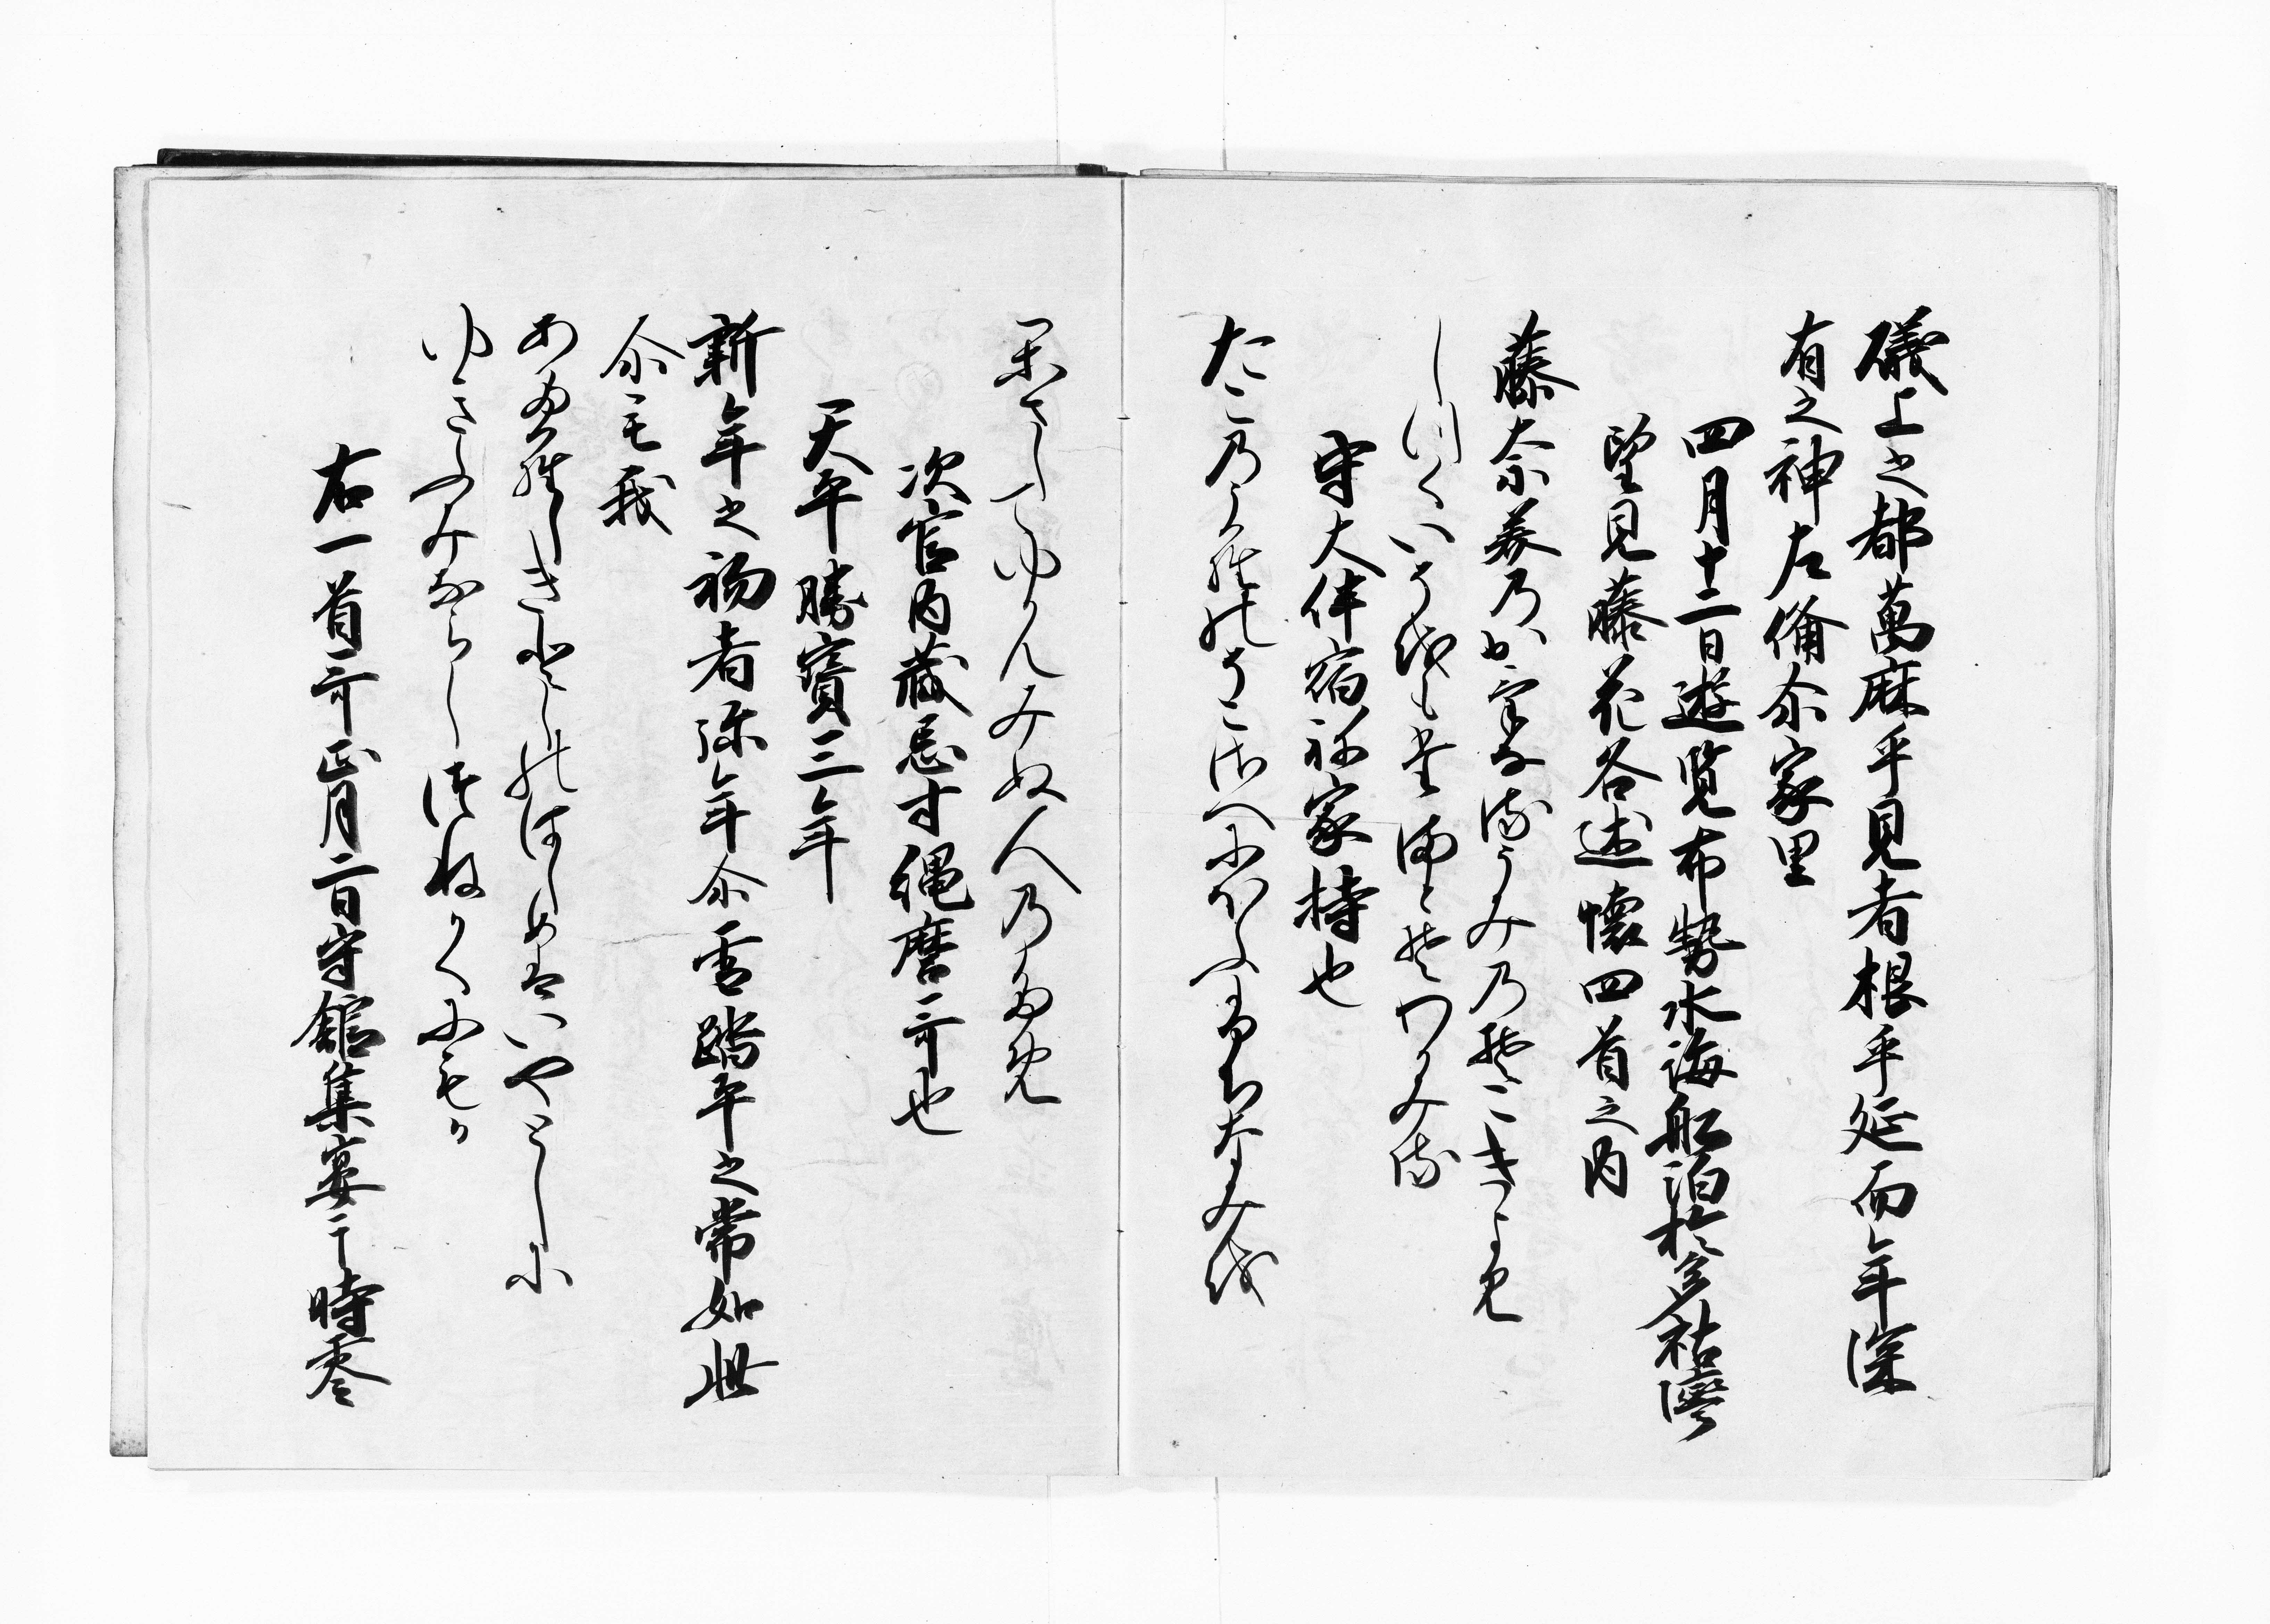 礒上之都萬麻乎見者根乎延而年深
有之神左備尓家里
四月十二日遊覧布勢水海船泊於多祜灣
望見藤花各述懐四首之内
藤奈美乃かけなるうみ乃そこきよみ
しつくいしをもたまとそわかみる
守大伴宿祢家持也
たこ乃うらのそこさへにほふふちなみを
かさしてゆかんみぬ人乃ため
次官内蔵忌寸縄麿哥也
天平勝寳三年
新年之初者弥年尓雪踏平之常如此
尓毛我
あたらしきとしのはしめはいやとしに
ゆきふみならしつねかくにもか
右一首哥正月二日守舘集宴于時零